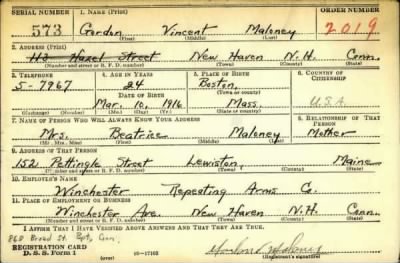 SERIAL NUMBER 1. NAME (Print) ORDER NUMBER
573 Gordon Vincent Maloney 2019
(First) (Middle) (Last)
2. ADDRESS (Print)
113 Hazel Street New Haven N.H. Conn.
(Number and street or R. F. D. number) (Town) (County) (State)
3. TELEPHONE 4. AGE IN YEARS 5. PLACE OF BIRTH 6. COUNTRY OF CITIZENSHIP
5-7967 24 Boston,
DATE OF BIRTH (Town or county)
Mar. 10, 1916 Mass. U.S.A.
(Exchange) (Number) (Mo.) (Day) (Yr.) (State or country)
7. NAME OF PERSON WHO WILL ALWAYS KNOW YOUR ADDRESS 8. RELATIONSHIP OF THAT PERSON
Mrs. Beatrice Maloney Mother
(Mr., Mrs., Miss) (First) (Middle) (Last)
9. ADDRESS OF THAT PERSON
152 Pettingle Street Lewiston, Maine
(Number and street or R. F. D. number) (Town) (County) (State)
10. EMPLOYER'S NAME
Winchester Repeating Arms Co.
11. PLACE OF EMPLOYMENT OR BUSINESS
Winchester Ave. New Haven N.H. Conn.
(Number and street or R. F. D. number) (Town) (County) (State)
I AFFIRM THAT I HAVE VERIFIED ABOVE ANSWERS AND THAT THEY ARE TRUE.
860 Broad St. Bpt, Conn.
REGISTRATION CARD
D. S. S. Form 1 (Registrant's signature)